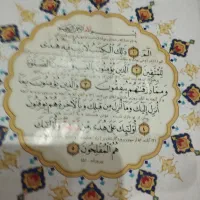 الٓمٓ ۝١ ذَٰلِكَ ٱلْكِتَٰبُ لَا رَيْبَ فِيهِ هُدًى
لِّلْمُتَّقِينَ ۝٢ ٱلَّذِينَ يُؤْمِنُونَ بِٱلْغَيْبِ وَيُقِيمُونَ ٱلصَّلَوٰةَ
وَمِمَّا رَزَقْنَٰهُمْ يُنفِقُونَ ۝٣ وَٱلَّذِينَ يُؤْمِنُونَ بِمَآ
أُنزِلَ إِلَيْكَ وَمَآ أُنزِلَ مِن قَبْلِكَ وَبِٱلْءَاخِرَةِ هُمْ يُوقِنُونَ
۝٤ أُو۟لَٰٓئِكَ عَلَىٰ هُدًى مِّن رَّبِّهِمْ وَأُو۟لَٰٓئِكَ
هُمُ ٱلْمُفْلِحُونَ ۝٥